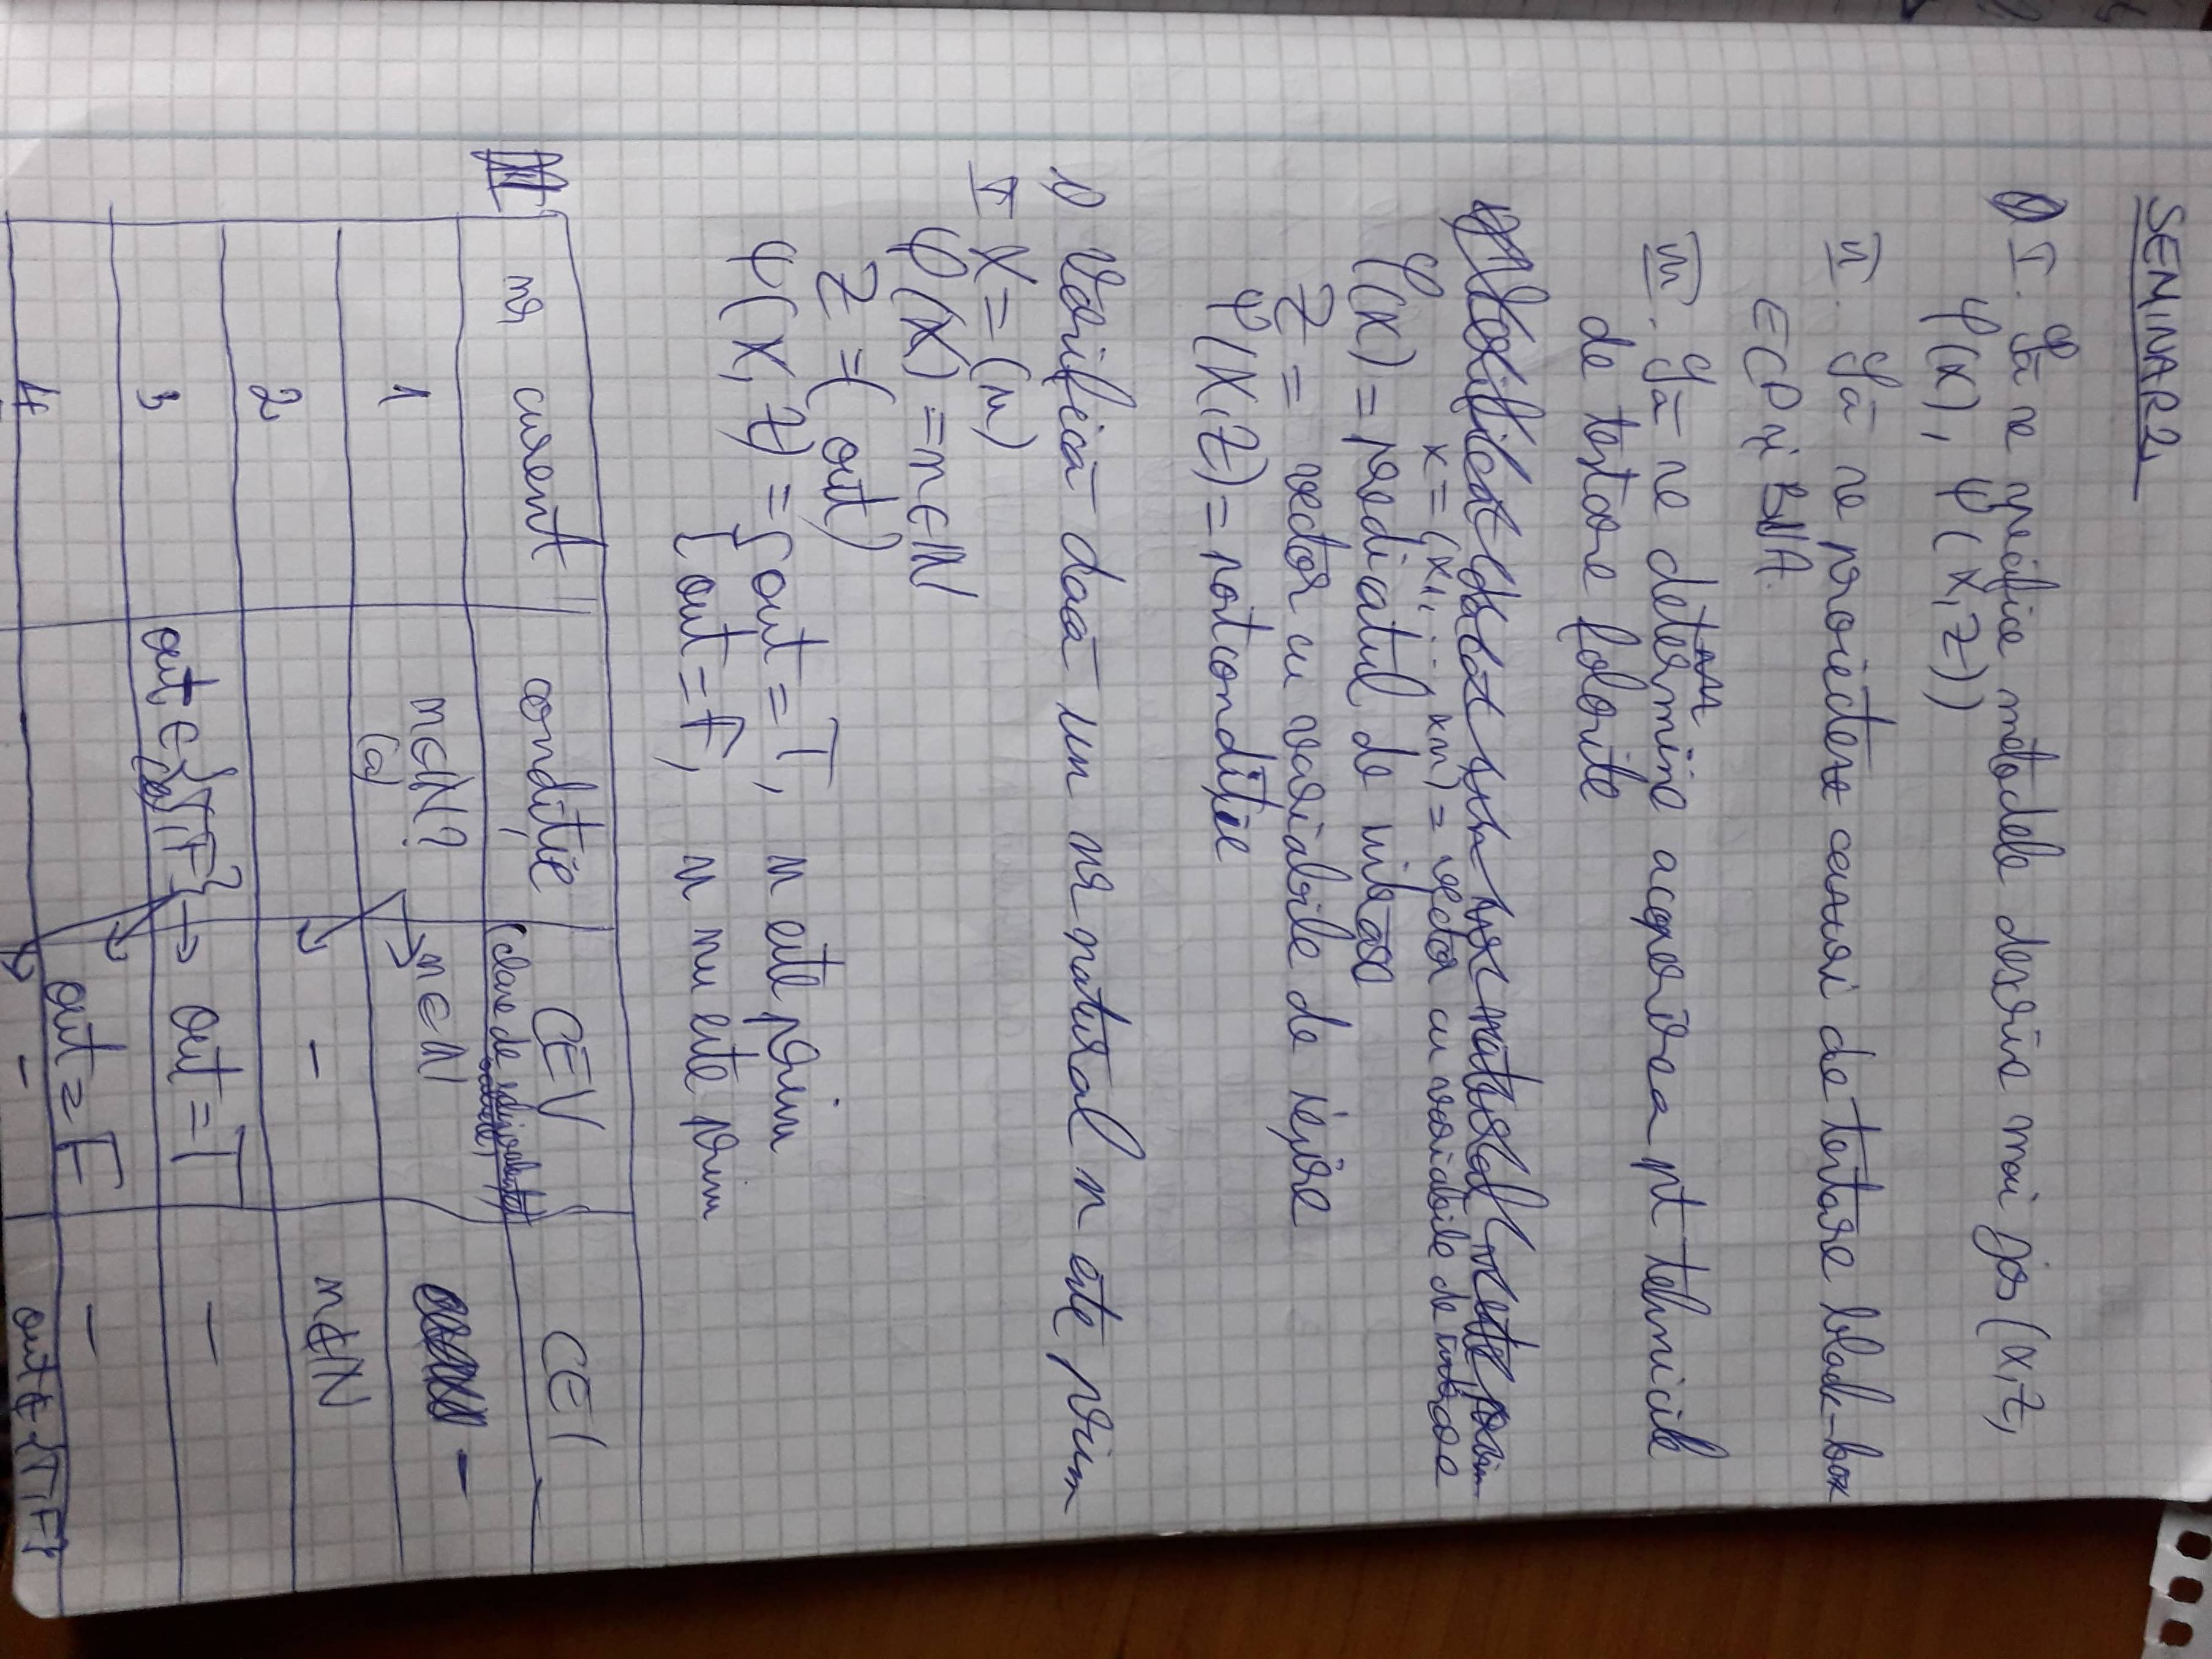 SEMINAR 2
I. Să se specifice metodele descrise mai jos (X,Z,
φ(X), Ψ(X,Z))
II. Să se proiecteze cazuri de testare black-box
ECP și BVA.
III. Să se determine acoperirea pt tehnicile
de testare folosite
1) Verifică dacă un nr natural n este prim
X = (x1, ..., xn) = vector cu variabile de intrare
φ(X) = predicatul de intrare
Z = vector cu variabile de ieșire
Ψ(X,Z) = postcondiție
1) Verifică dacă un nr natural n este prim
I X = (n)
φ(X) = n∈ℕ
Z = (out)
Ψ(X,Z) = { out = T, n este prim
{ out = F, n nu este prim
II nr curent condiție CEV CEI
(clase de echivalență valide)
1 n∈ℕ? n∈ℕ -
(a)
2 - n∉ℕ
3 out ∈ {T,F} → out = T -
4 out = F -
- out ∉ {T,F}